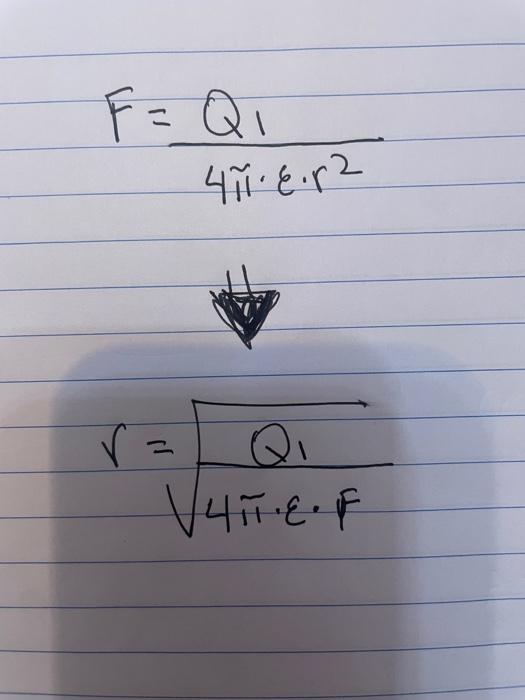 F = Q1
4π·ε·r2
r = √Q1
4π·ε·F